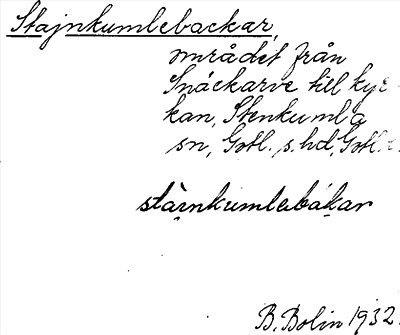 Stajnkumlebackar,
området från
Snäckarve till kyr-
kan, Stenkumla
sn, Gotl. s. hd, Gotl.
stàrnkumlebákar
B. Bolin 1932.